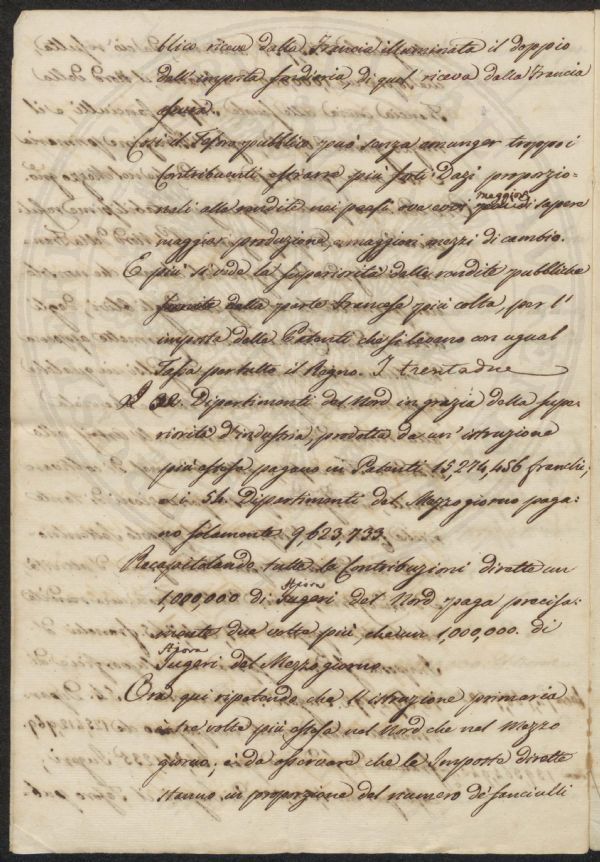 blico riceve dalla Francia illuminata il doppio
dell'imposta fondiaria, di quel riceva dalla Francia
oscura.
Così il Tesoro pubblico può senza emunger troppo i
Contribuenti estrarre più forti Dazi proporzio-
nali alle rendite nei paesi ove evvi maggior sapere
maggior produzione, e maggiori mezzi di cambio.
E più si vede la superiorità delle rendite pubbliche
fornite dalla parte Francese più colta, per l'
imposta delle Patenti che si levano con ugual
Tassa per tutto il Regno. I trentadue
I 32. Dipartimenti del Nord in grazia della supe-
riorità d'industria, prodotta da un'istruzione
più estesa pagano in Patenti 15,274,456 franchi;
e i 54 Dipartimenti del Mezzogiorno paga-
no solamente 9,623,733.
Recapitolando tutte le Contribuzioni dirette un
1,000,000 di Jugeri del Nord paga precisa-
mente due volte più, che un 1,000,000. di
Jugeri del Mezzogiorno.
Ora qui ripetendo che l'istruzione primaria
è tre volte più estesa nel Nord che nel Mezzo
giorno; è da osservare che le Imposte dirette
stanno in proporzione del numero de' fanciulli